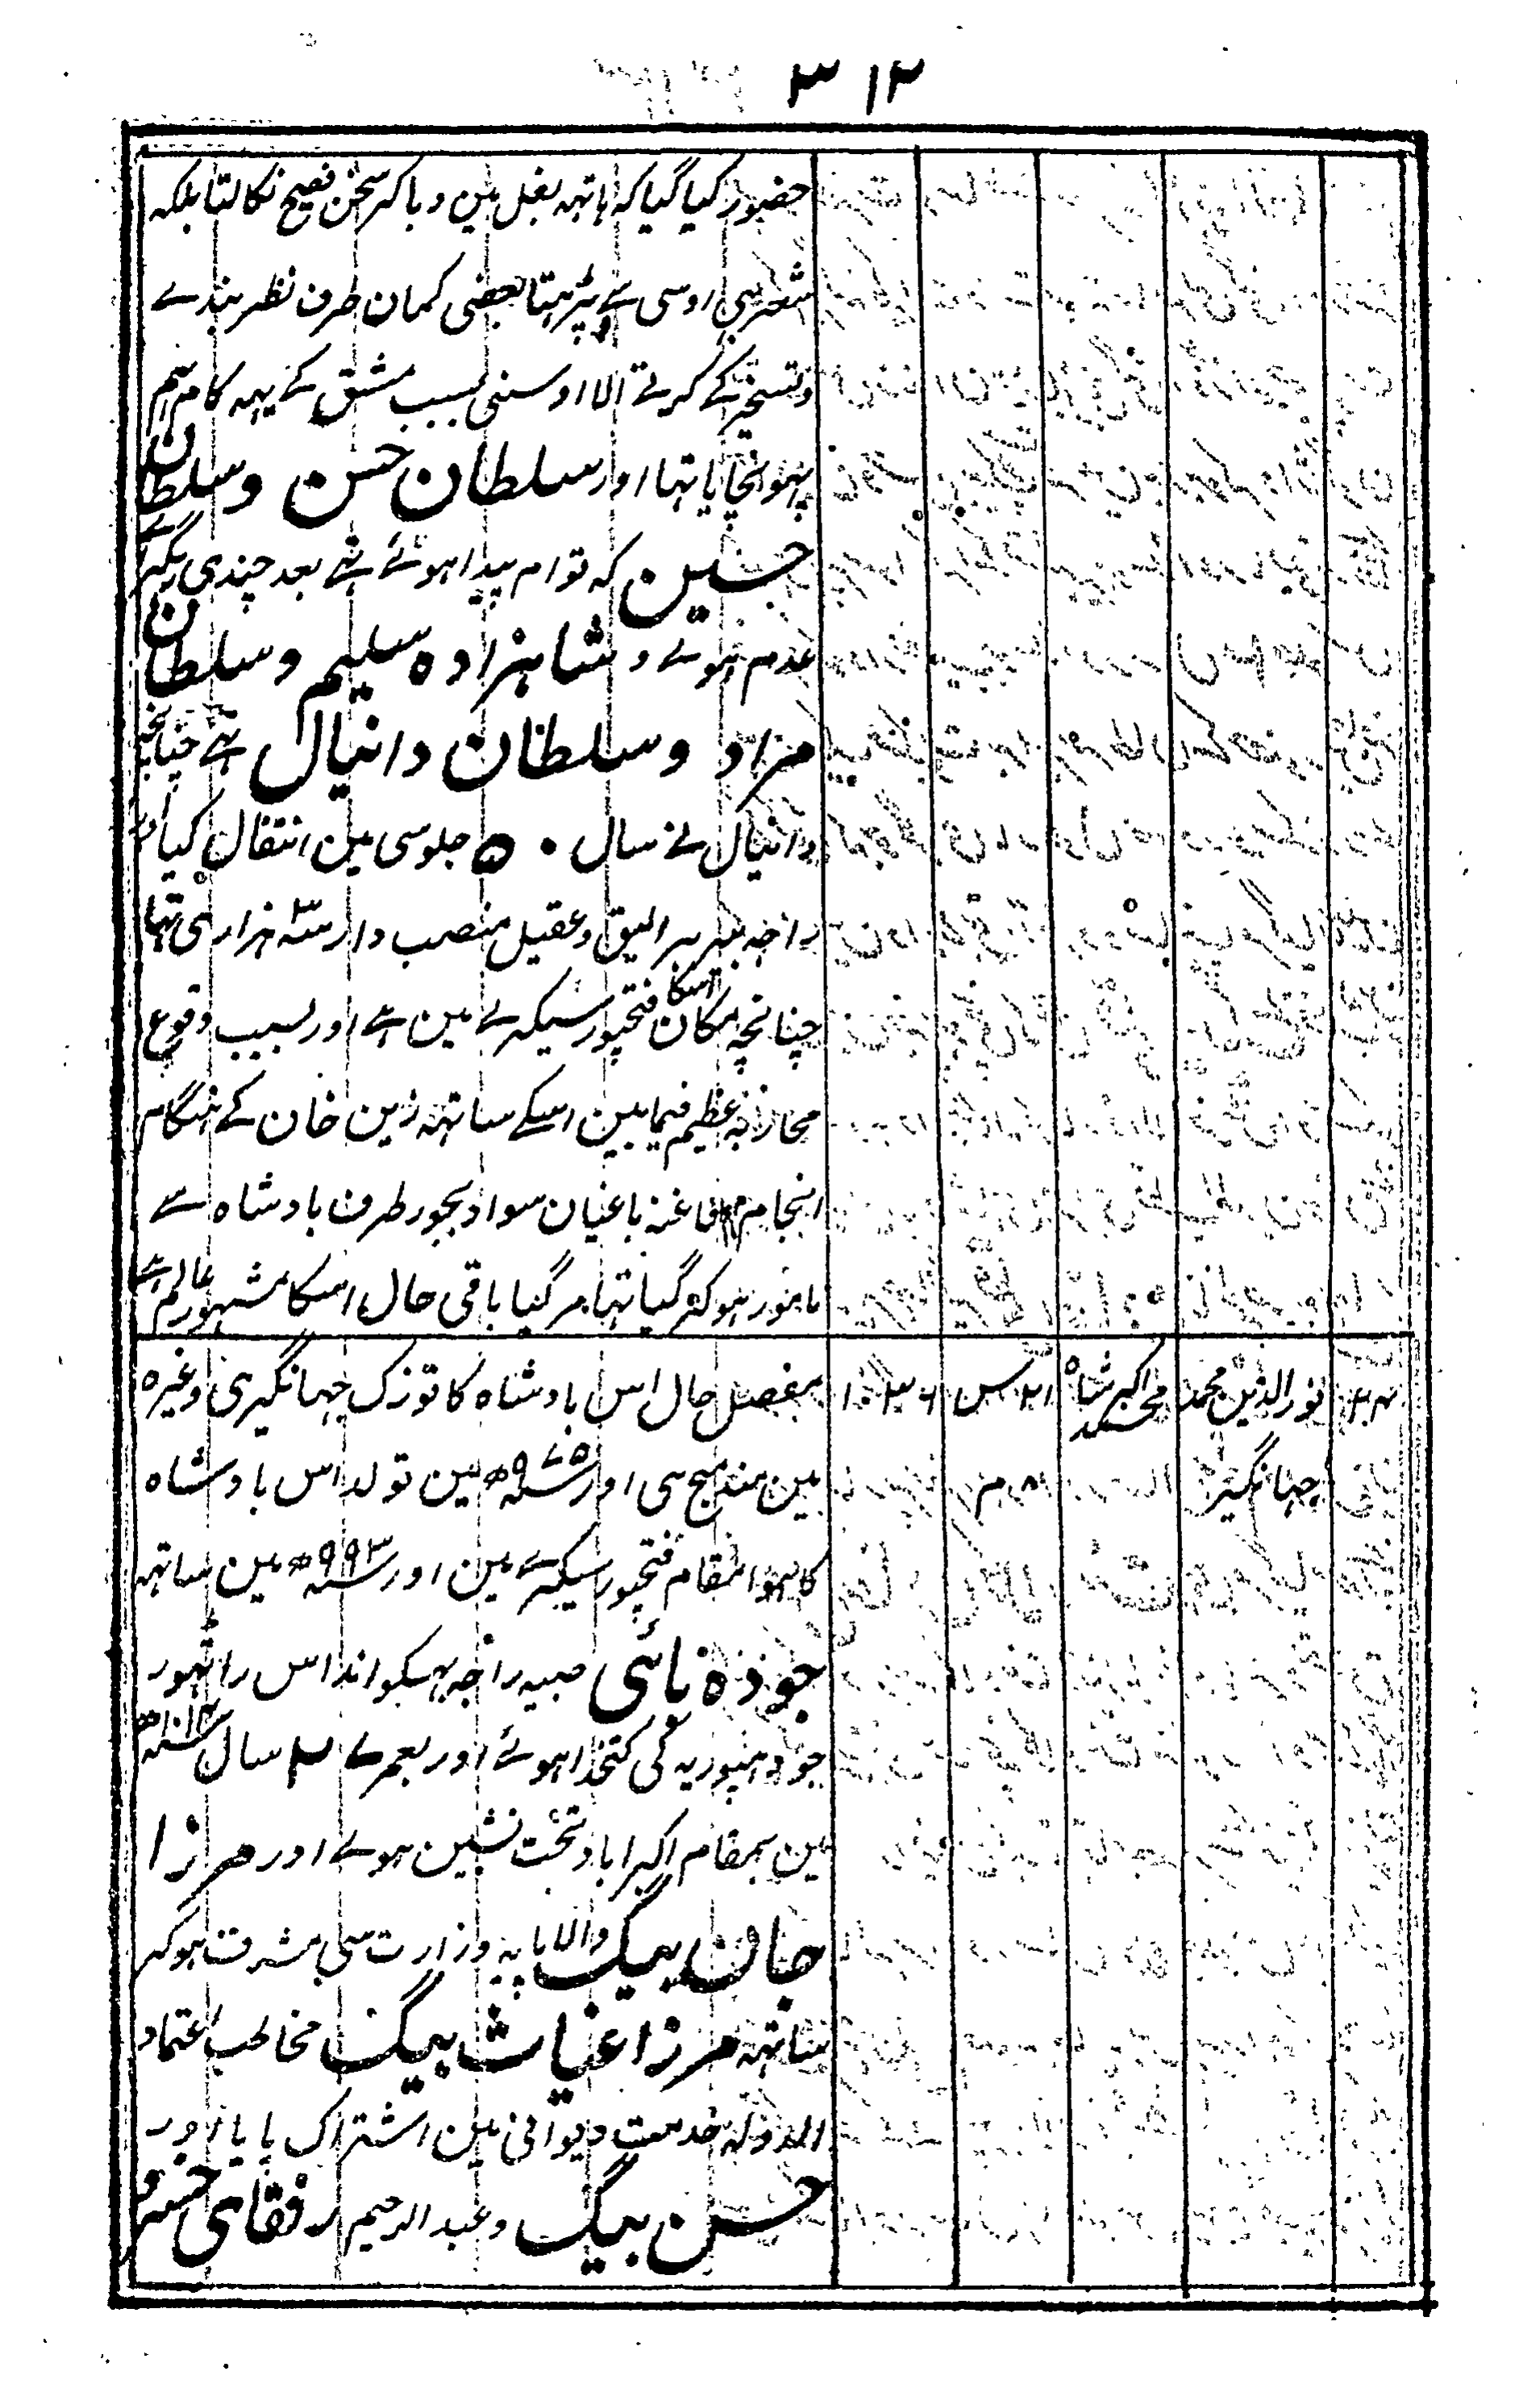 ۳۱۲
حضور کیا گیا کہ ہاتہہ بغل مین دباکر سخن فصیح نکالتا بلکہ
شعر بہی اوسی سے پڑہتا بعضی کمان طرف نظر بندے
وتسخیر کے کرتے الا اوسنی بسبب مشق کے یہہ کام بہم
پہونچایا تہا اور سلطان حسن وسلطان
حسین کہ توام پیدا ہوئے تھے بعد چندی
عدم ہوئے و شاہزادہ سلیم وسلطان
مراد وسلطان دانیال تہے چنانچہ
دانیال نے سال ۵۰ جلوسی مین انتقال کیا اور
راجہ بیربر الیق وعقیل منصب دار سہ ہزاری تہا
چنانچہ مکان اسکا فتحپور سیکرے مین ہے اور بسبب وقوع
محاربہ عظیم فیمابین اسکے ساتہہ زین خان کے ہنگام
انجام افاغنہ باغیان سواد بجور طرف بادشاہ سے
مامور ہوکر گیا تہا مر گیا باقی حال اسکا مشہور عالم ہے
نور الدین محمد محمد اکبر شاہ ۲۱ س ۱۰۳۶ مفصل حال اس بادشاہ کا توزک جہانگیری وغیرہ
جہانگیر ۸ م مین مندرج ہی اور سنہ ۹۷۵ھ مین تولد اس بادشاہ
کا ہوا بمقام فتحپور سیکرے مین اور سنہ ۹۹۳ھ مین ساتہہ
جودہ بائی صبیہ راجہ بہگوانداس راٹہور
جودہپوریہ کی کتخدا ہوئے اور بعمر سال سنہ ۱۰۱۴ھ
مین بمقام اکبراباد تخت نشین ہوے اور مرزا
جان بیگ والا پایہ وزارت سی مشرف ہوکر
ساتہہ مرزا غیاث بیگ مخاطب اعتماد
الدولہ خدمت دیوانی مین اشتراک پایا اور
حسن بیگ وعبد الرحیم رفقای خسرو